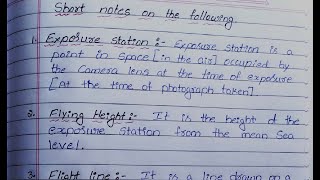 Short notes on the following
1. Exposure Station :- Exposure station is a
point in space [in the air] occupied by
the Camera lens at the time of exposure
[At the time of photograph taken].
2. Flying Height :- It is the height of the
exposure station from the mean Sea
level.
3. Flight line :- It is a line drawn on a